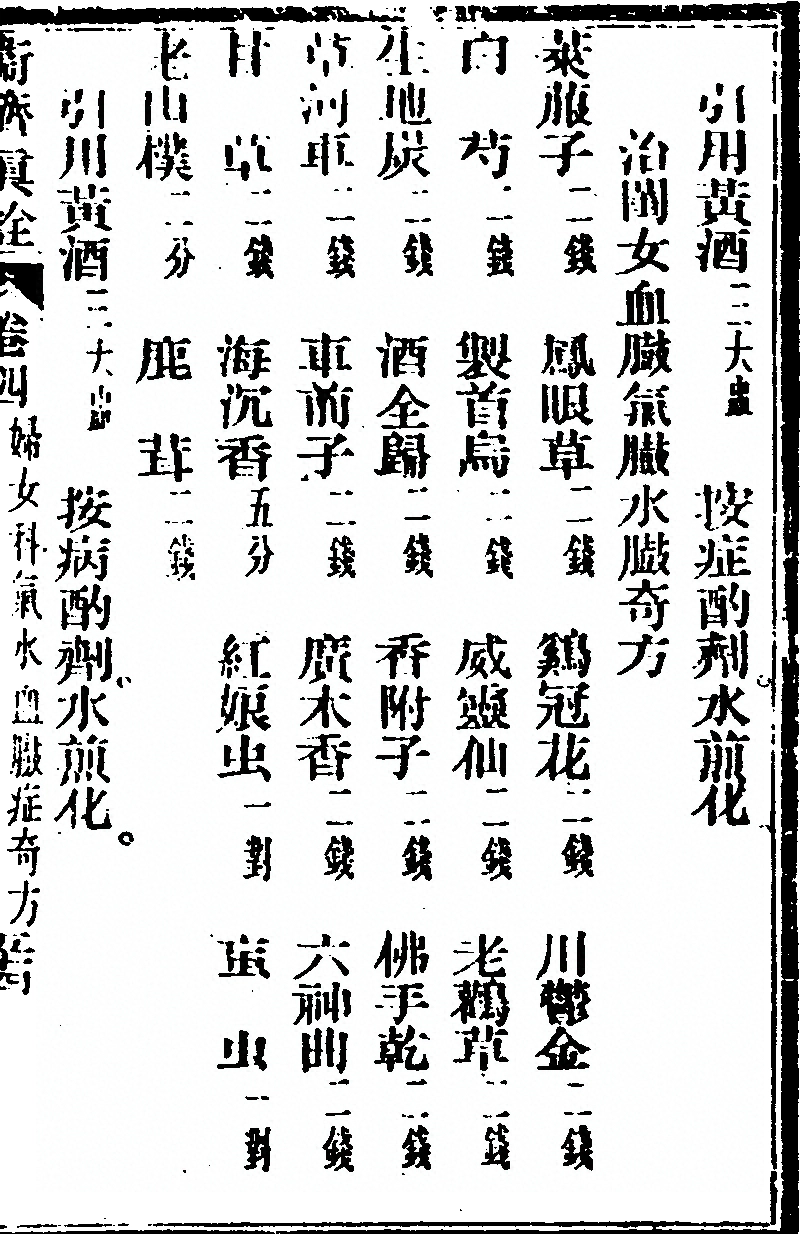 引用黃酒三大盅 按症酌劑水煎化
治閨女血臌氣臌水臌奇方
萊菔子二錢 鳳眼草二錢 鷄冠花二錢 川鬱金二錢
白芍二錢 製首烏二錢 威靈仙二錢 老鸛草二錢
生地炭二錢 酒全歸二錢 香附子二錢 佛手乾二錢
草河車二錢 車前子二錢 廣木香二錢 六神曲二錢
甘草二錢 海沉香五分 紅娘虫一對 䖟虫一對
老山樸二分 鹿茸二錢
引用黃酒三大盅 按病酌劑水煎化
濟眞詮 卷四 婦女科氣水血臌症奇方